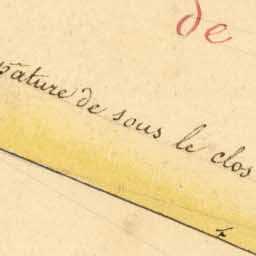 de
pature de sous le clos